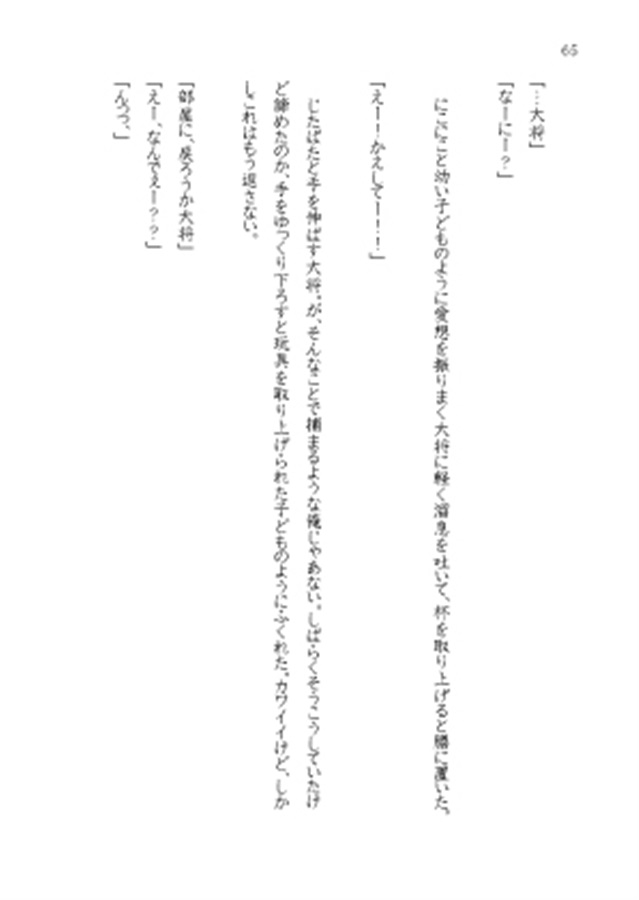 65
「…大将」
「なーにー?」
にこにこと幼い子どものように愛想を振りまく大将に軽く溜息を吐いて、杯を取り上げると膳に置いた。
「えー!かえしてー!!」
じたばたと手を伸ばす大将。が、そんなことで捕まるような俺じゃあない。しばらくそうこうしていたけ
ど諦めたのか、手をゆっくり下ろすと玩具を取り上げられた子どものようにふくれた。カワイイけど、しか
しこれはもう返さない。
「部屋に、戻ろうか大将」
「えー、なんでぇー??」
「んっっ、」